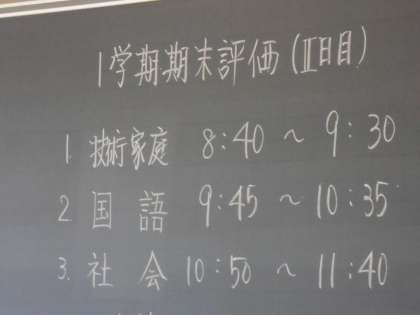 1学期期末評価(Ⅱ日目)
1 技術家庭 8:40 ~ 9:30
2 国語 9:45 ~ 10:35
3. 社会 10:50 ~ 11:40